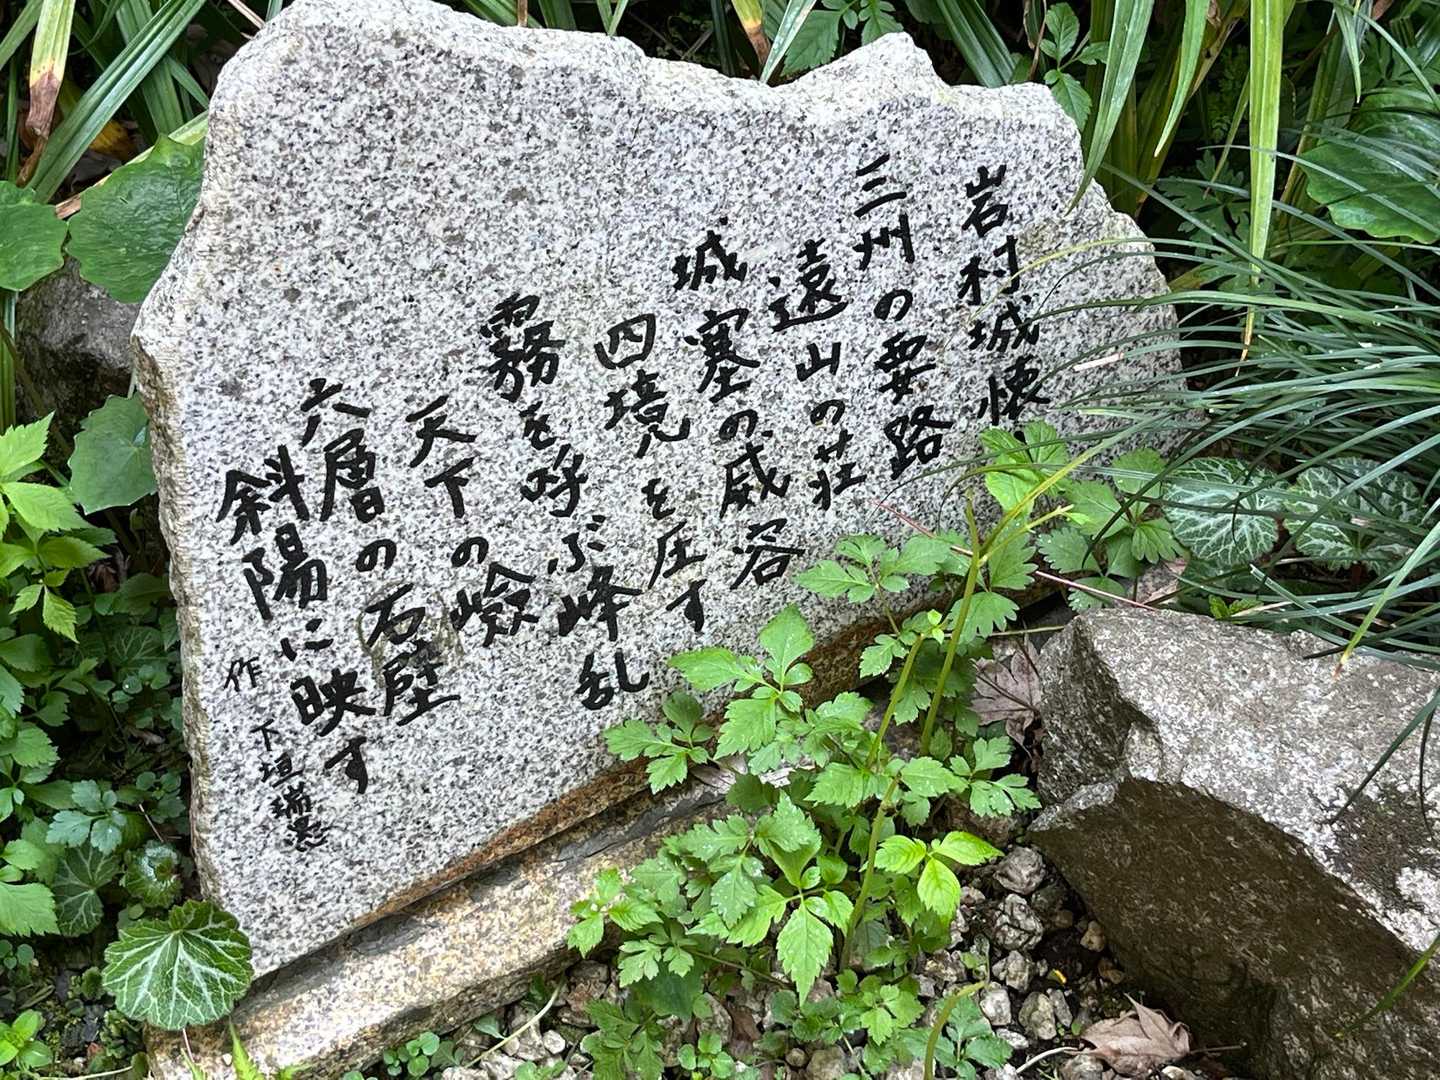 岩村城懐
三州の要路
遠山の荘
城塞の威容
四境を圧す
霧を呼ぶ峰乱
天下の嶮
六層の石壁
斜陽に映す
作 下垣瑞